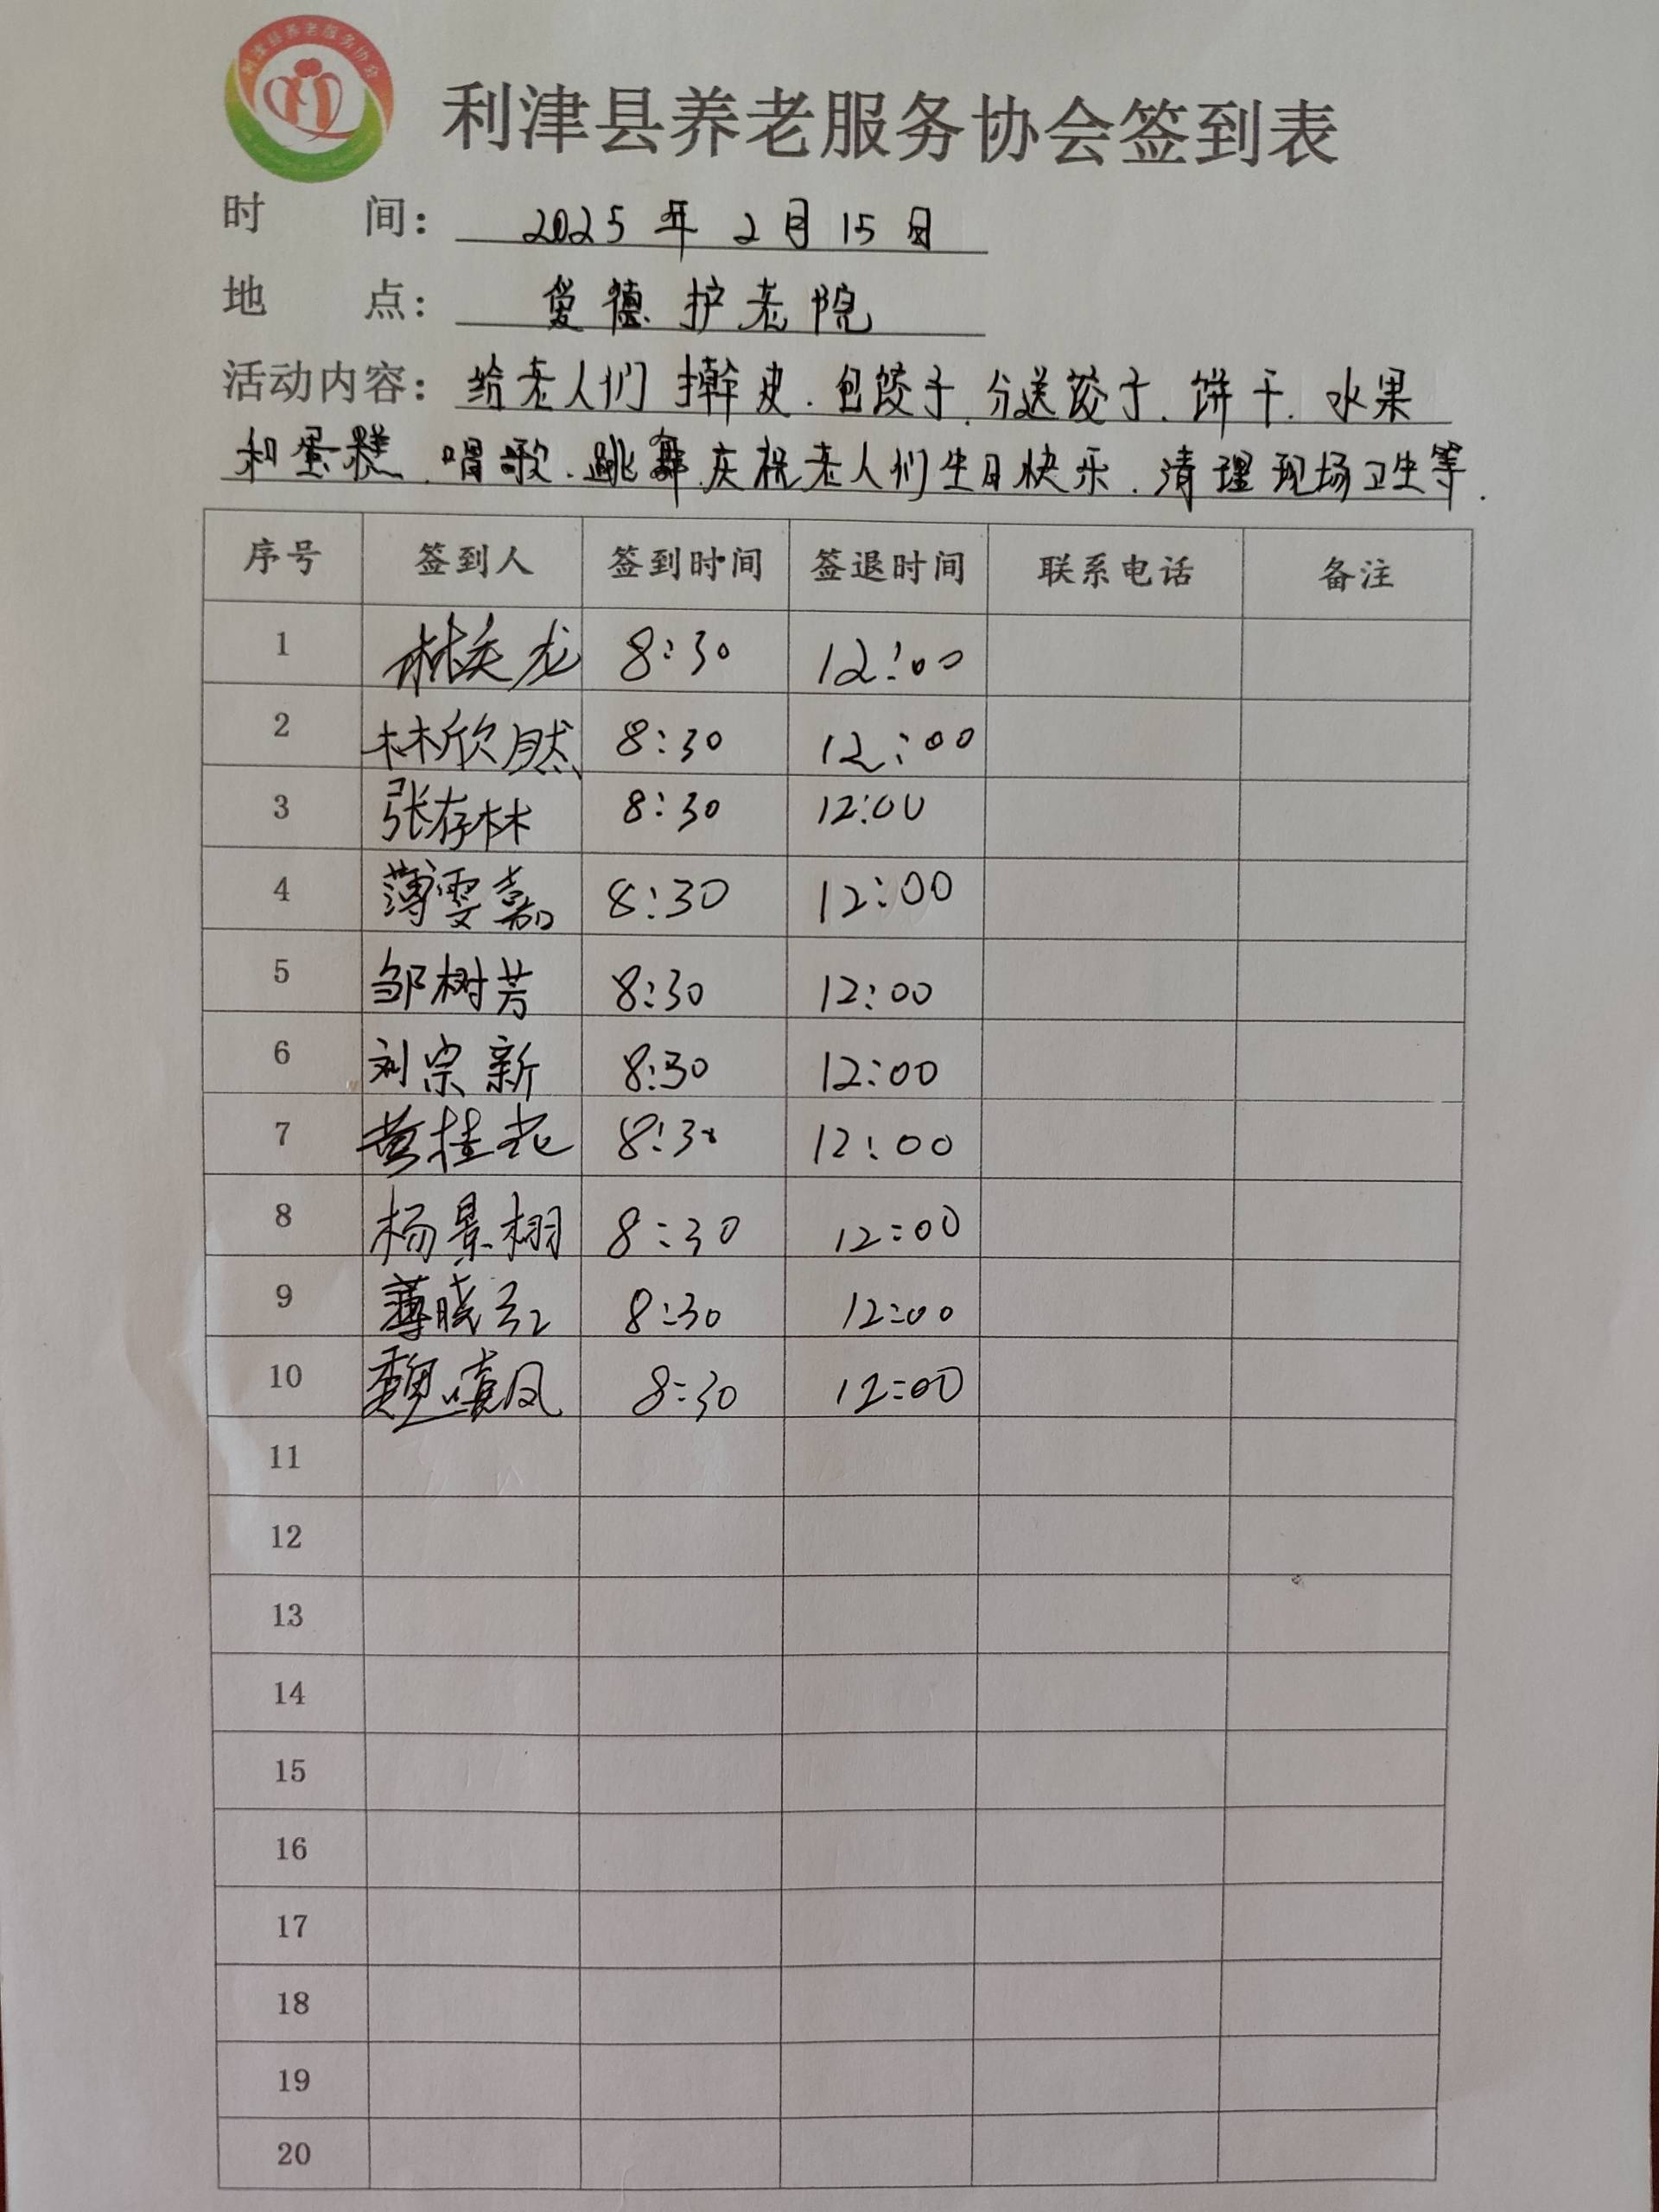 利津县养老服务协会
利津县养老服务协会签到表
时 间: 2025年2月15日
地 点: 爱德护老院
活动内容: 给老人们擀皮.包饺子.分送饺子.饼干.水果
和蛋糕.唱歌.跳舞.庆祝老人们生日快乐.清理现场卫生等.
序号 签到人 签到时间 签退时间 联系电话 备注
1 林 龙 8:30 12:00
2 林欣然 8:30 12:00
3 张存林 8:30 12:00
4 薄雯嘉 8:30 12:00
5 邹树芳 8:30 12:00
6 刘宗新 8:30 12:00
7 黄桂花 8:30 12:00
8 杨景栩 8:30 12:00
9 薄晓红 8:30 12:00
10 魏 凤 8:30 12:00
11
12
13
14
15
16
17
18
19
20